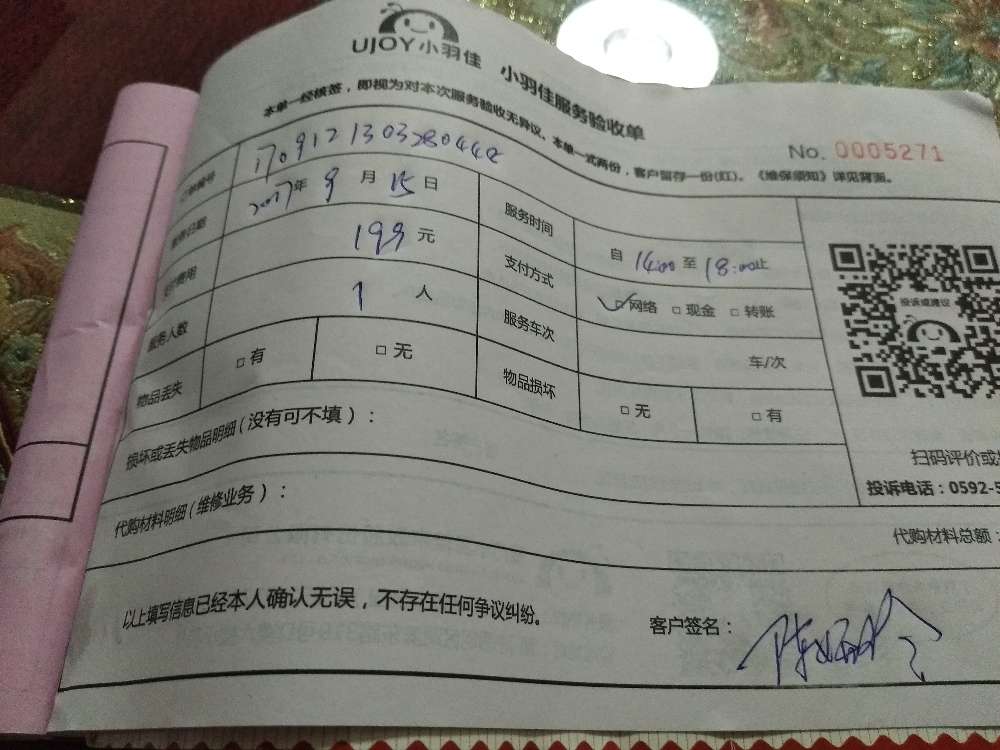 UJOY小羽佳 小羽佳服务验收单
本单一经核签，即视为对本次服务验收无异议、本单一式两份，客户留存一份(红)。《维保须知》详见背面。
No. 0005271
订单编号 170912130328044
服务日期 2017年 9 月 15 日 服务时间 自 14:00 至 18:00止
费用 199 元 支付方式 ✓□网络 □现金 □转账
服务人数 1 人 服务车次 车/次
物品丢失 □有 □无 物品损坏 □无 □有
投诉或建议
扫码评价或
投诉电话：0592-5
损坏或丢失物品明细（没有可不填）：
代购材料明细（维修业务）：
代购材料总额：
以上填写信息已经本人确认无误，不存在任何争议纠纷。
客户签名：